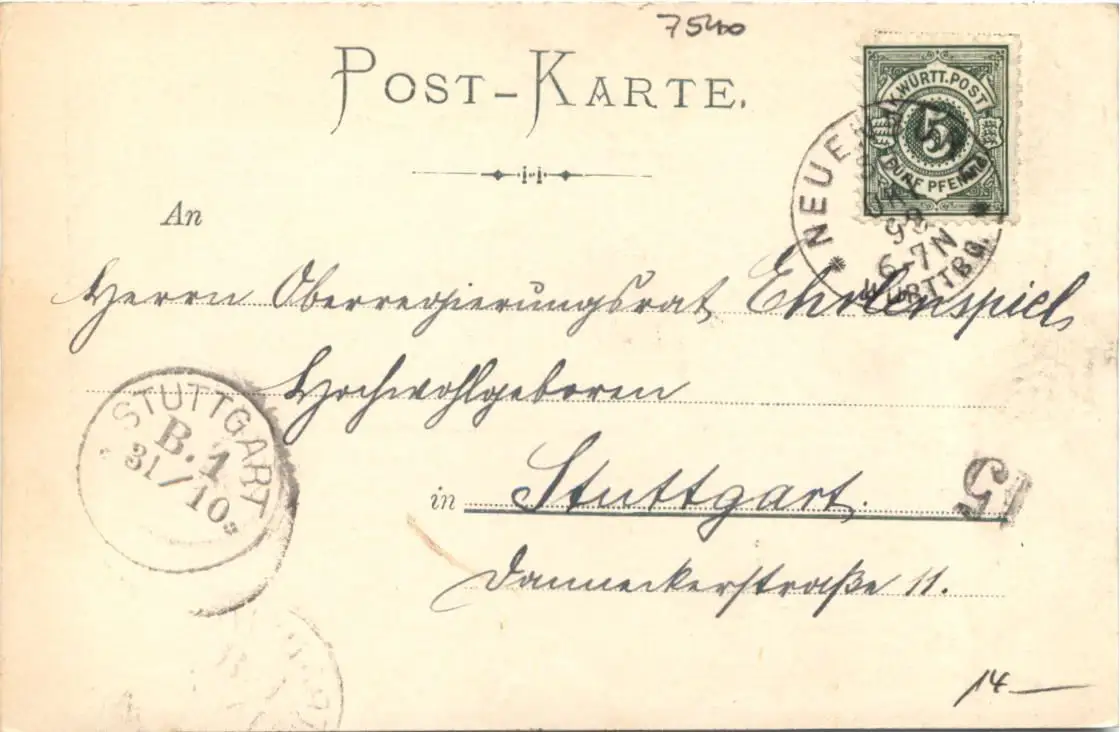 7540
POST-KARTE.
K. WÜRTT. POST
5
FÜNF PFENNIG
NEUEN
OKT
98
6-7N
WÜRTTBG.
An
Herrn Oberregierungsrat Ehrlenspiel
Hochwohlgeboren
STUTTGART
B.1
31/10
in Stuttgart.
15
Danneckerstraße 11.
14 —